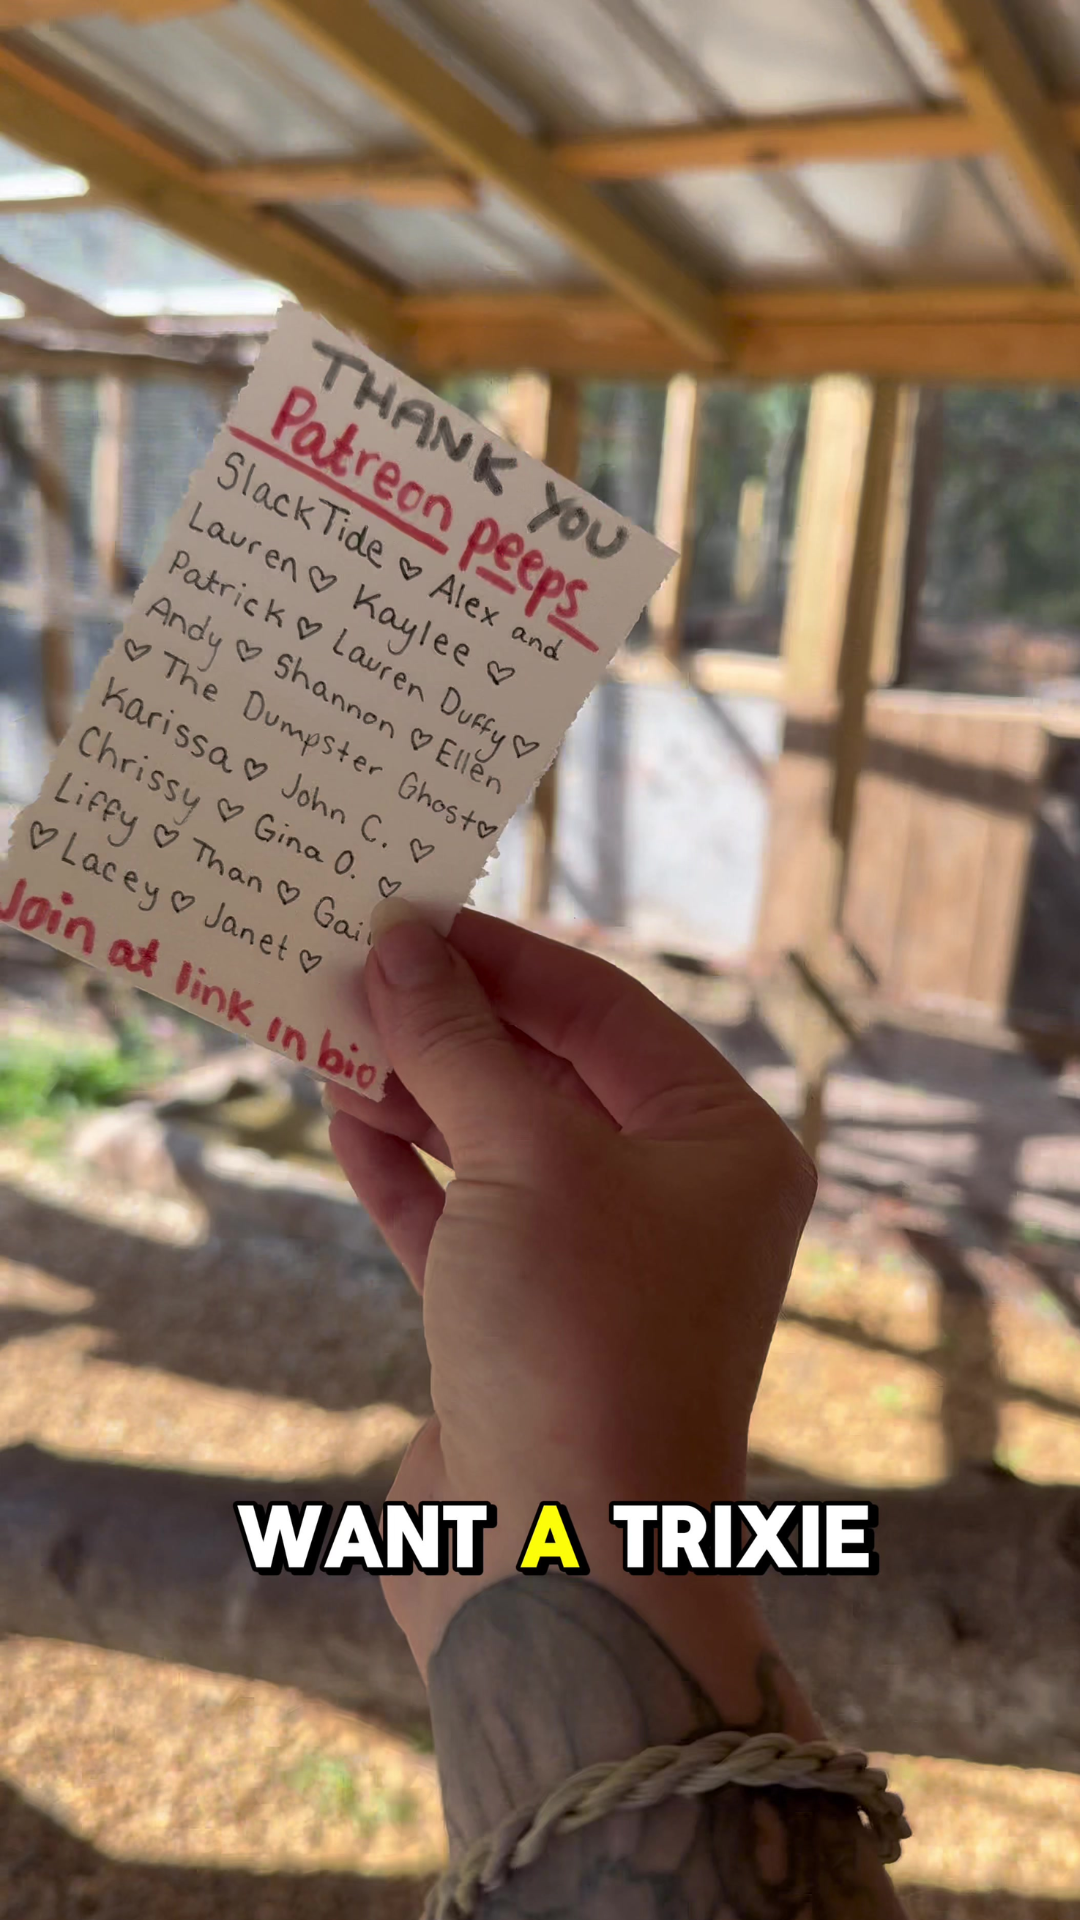 THANK YOU
Patreon peeps
SlackTide ♡ Alex and
Lauren ♡ Kaylee ♡
Patrick ♡ Lauren Duffy ♡
Andy ♡ Shannon ♡ Ellen
♡ The Dumpster Ghost ♡
Karissa ♡ John C. ♡
Chrissy ♡ Gina O. ♡
Liffy ♡ Than ♡ Gail
♡ Lacey ♡ Janet ♡
Join at link in bio
WANT A TRIXIE